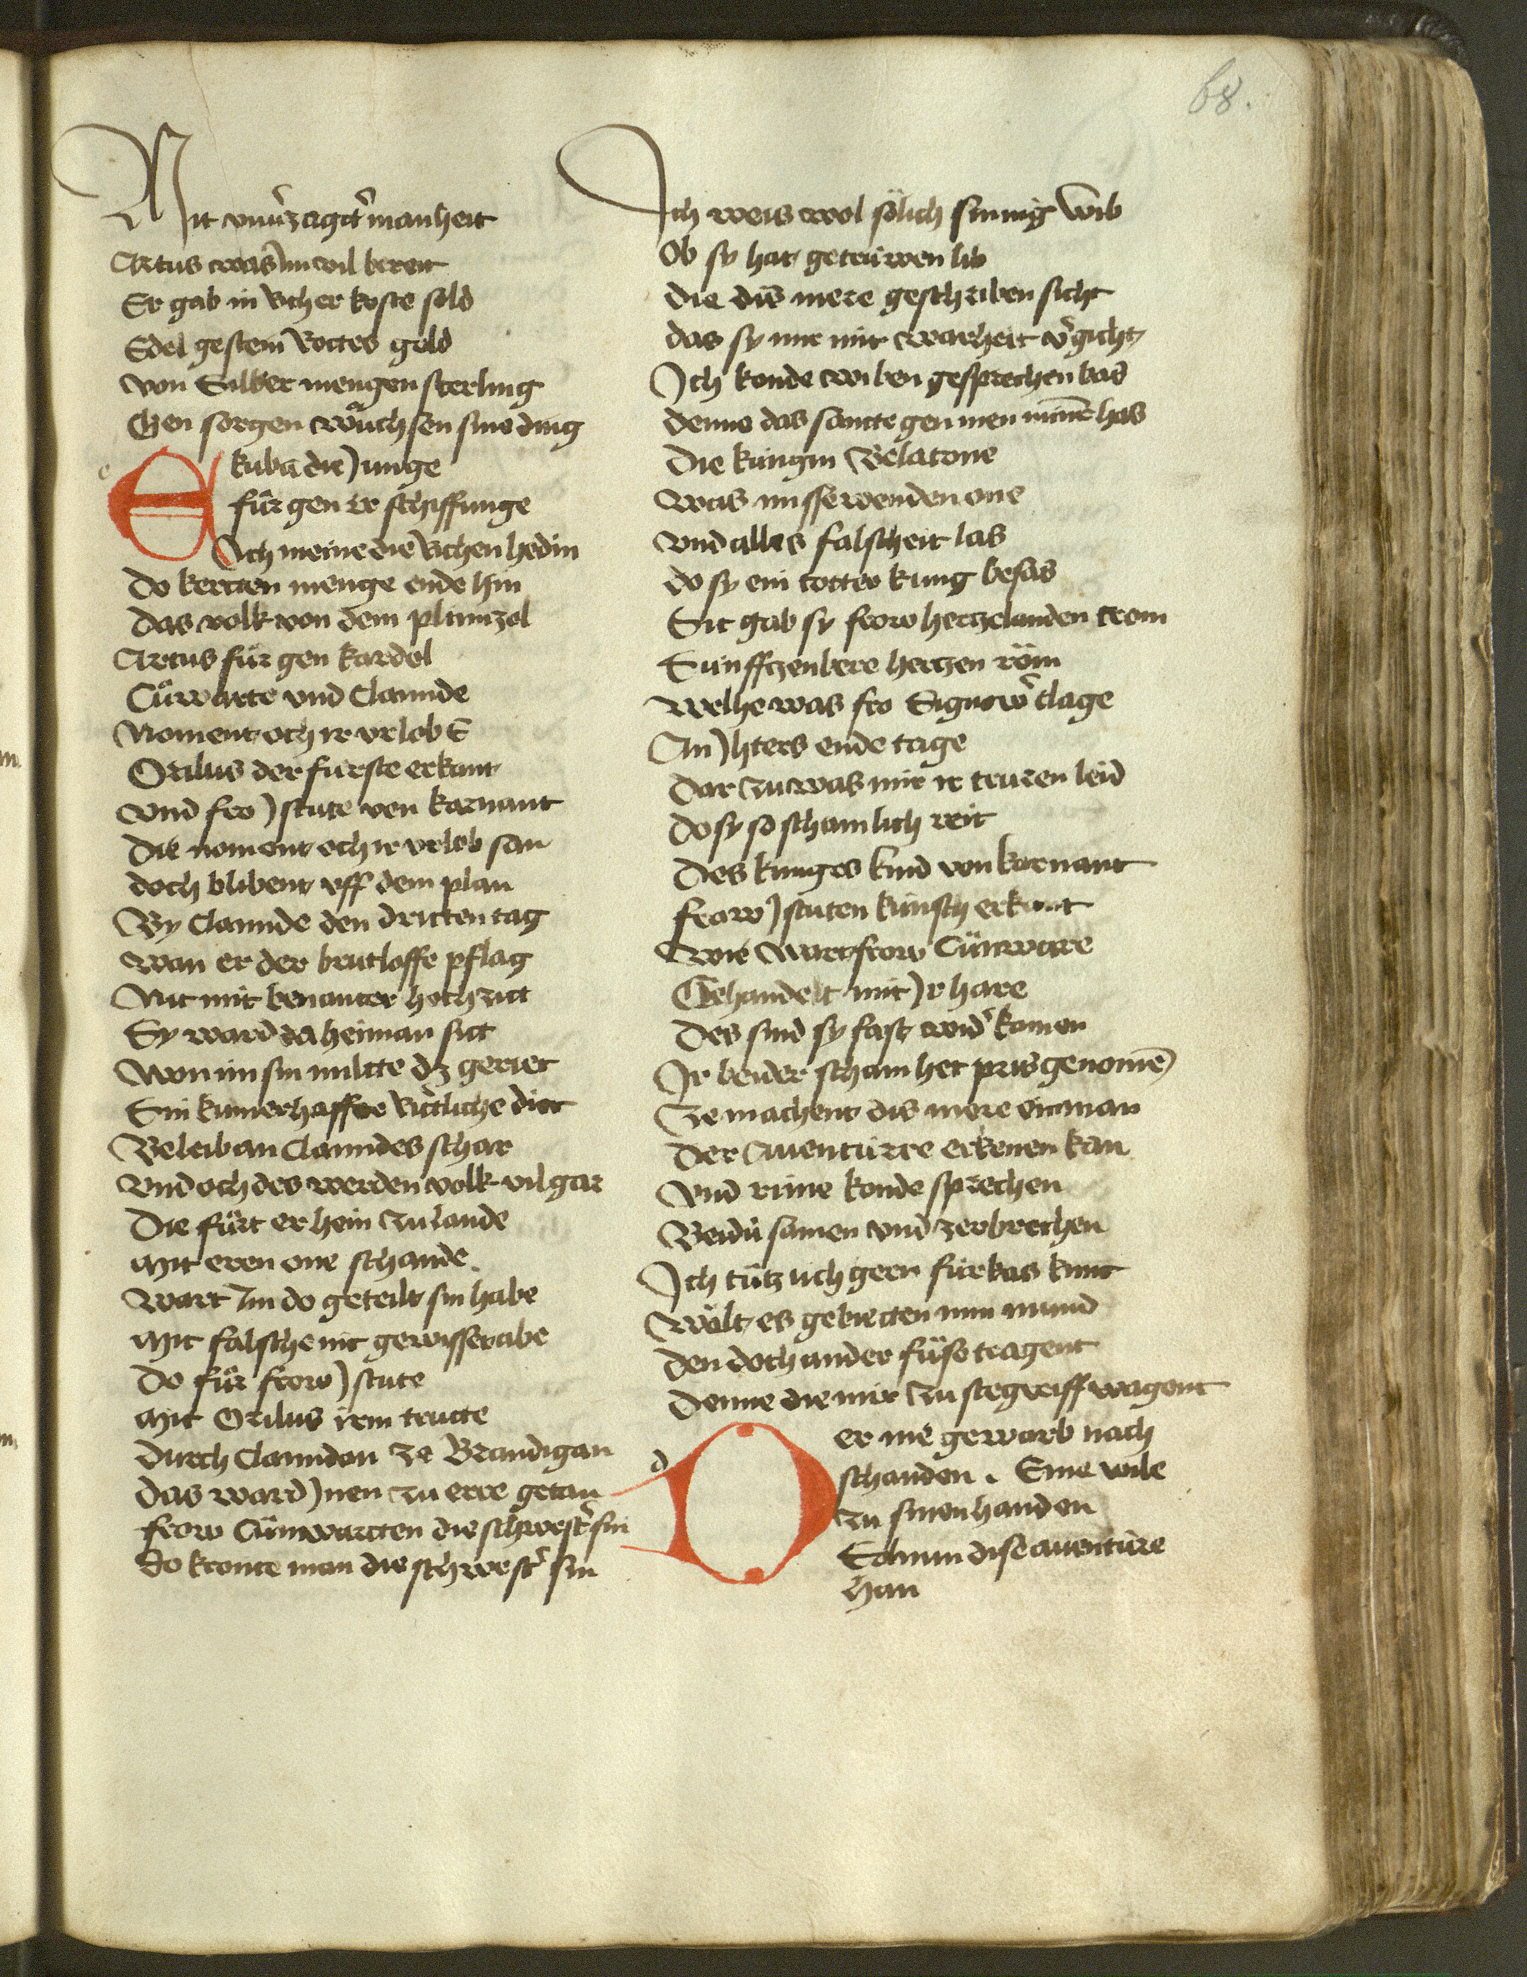 68.
Mit vnuˀzagitˀ manheit
Artus was im vil bereit
Er gab in richer koste sold
Edel gestein Rottes gold
von Silber mengen sterling
Gen sorgen wůchsen sine ding
e
Ekubā die Junge
fůr gen ir schiffunge
Ich meine die richen hedin
Do kerten menge ende hin
Das volk von dem plimizol
Artus fůr gen kardol
Cůwarte vnd Clamide
Noment och ir vrlob E
Orilus der fürste erkant
vnd fro Jscute von karnant
Die noment och ir vrlob san
doch blibent vff dem plan
By Clamide den dritten tag
wan er der brutloffe pflag
Nit mit benanter hochzitt
Sy ward da heiman sitt
Won im sin miltte dz geriet
Sin kumerhaffte Ritliche diet
Beleib an Clamides schar
vnd och des werden volk vil gar
Die fůrt er hein zu lande
mit eren one schande.
Wart Im do geteilt sin habe
mit falsche nit gewisser abe
Do fůr frow Jscute
mit Orilus irem trutte
durch Clamiden ze Brandigan
das ward Jnen zu erre getan
frow Cůnwartten die schwestˀ sin
do kronte man die schwestˀ sin
Ich weis wol sölich sinnig wib
Ob sy hat getrüwen lib
die dis mere geschriben sicht
das sy mir mit warheit vˀgicht
Ich konde wiben gesprechen bas
denne das sancte gen men minē has
Die küngin Belatone
was missewenden one
vnd alles falscheit las
do sy ein totter kung besas
Sit gab sy frow hertzelanden trom
Sünfftzenbere hertzen röm
welhe was fro Signowˀ clage
An Jhters ende tage
dar zu was mir ir truren leid
do sy so schamlich reit
des kunges kind von karnant
frow Jscuten künsch erkant
wie wart frow Cůnware
Gehandelt mit Jr hare
des sind sy fast widˀ komen
Ir beider scham het pris genomē
Ze machent dis mere ein man
der Auentürre erkenen kan
vnd rime konde sprechen
Beidü samen vnd zerbrechen
Ich tůtz uch gern fürbas kunt
wölt es gebietten mm mund
den doch ander füse tragent
denne die mir zu stegreiff wagent
d
Der nie gewarb nach
schanden. Eine wile
zu sinen handen
Sol nun dise auentüre
han